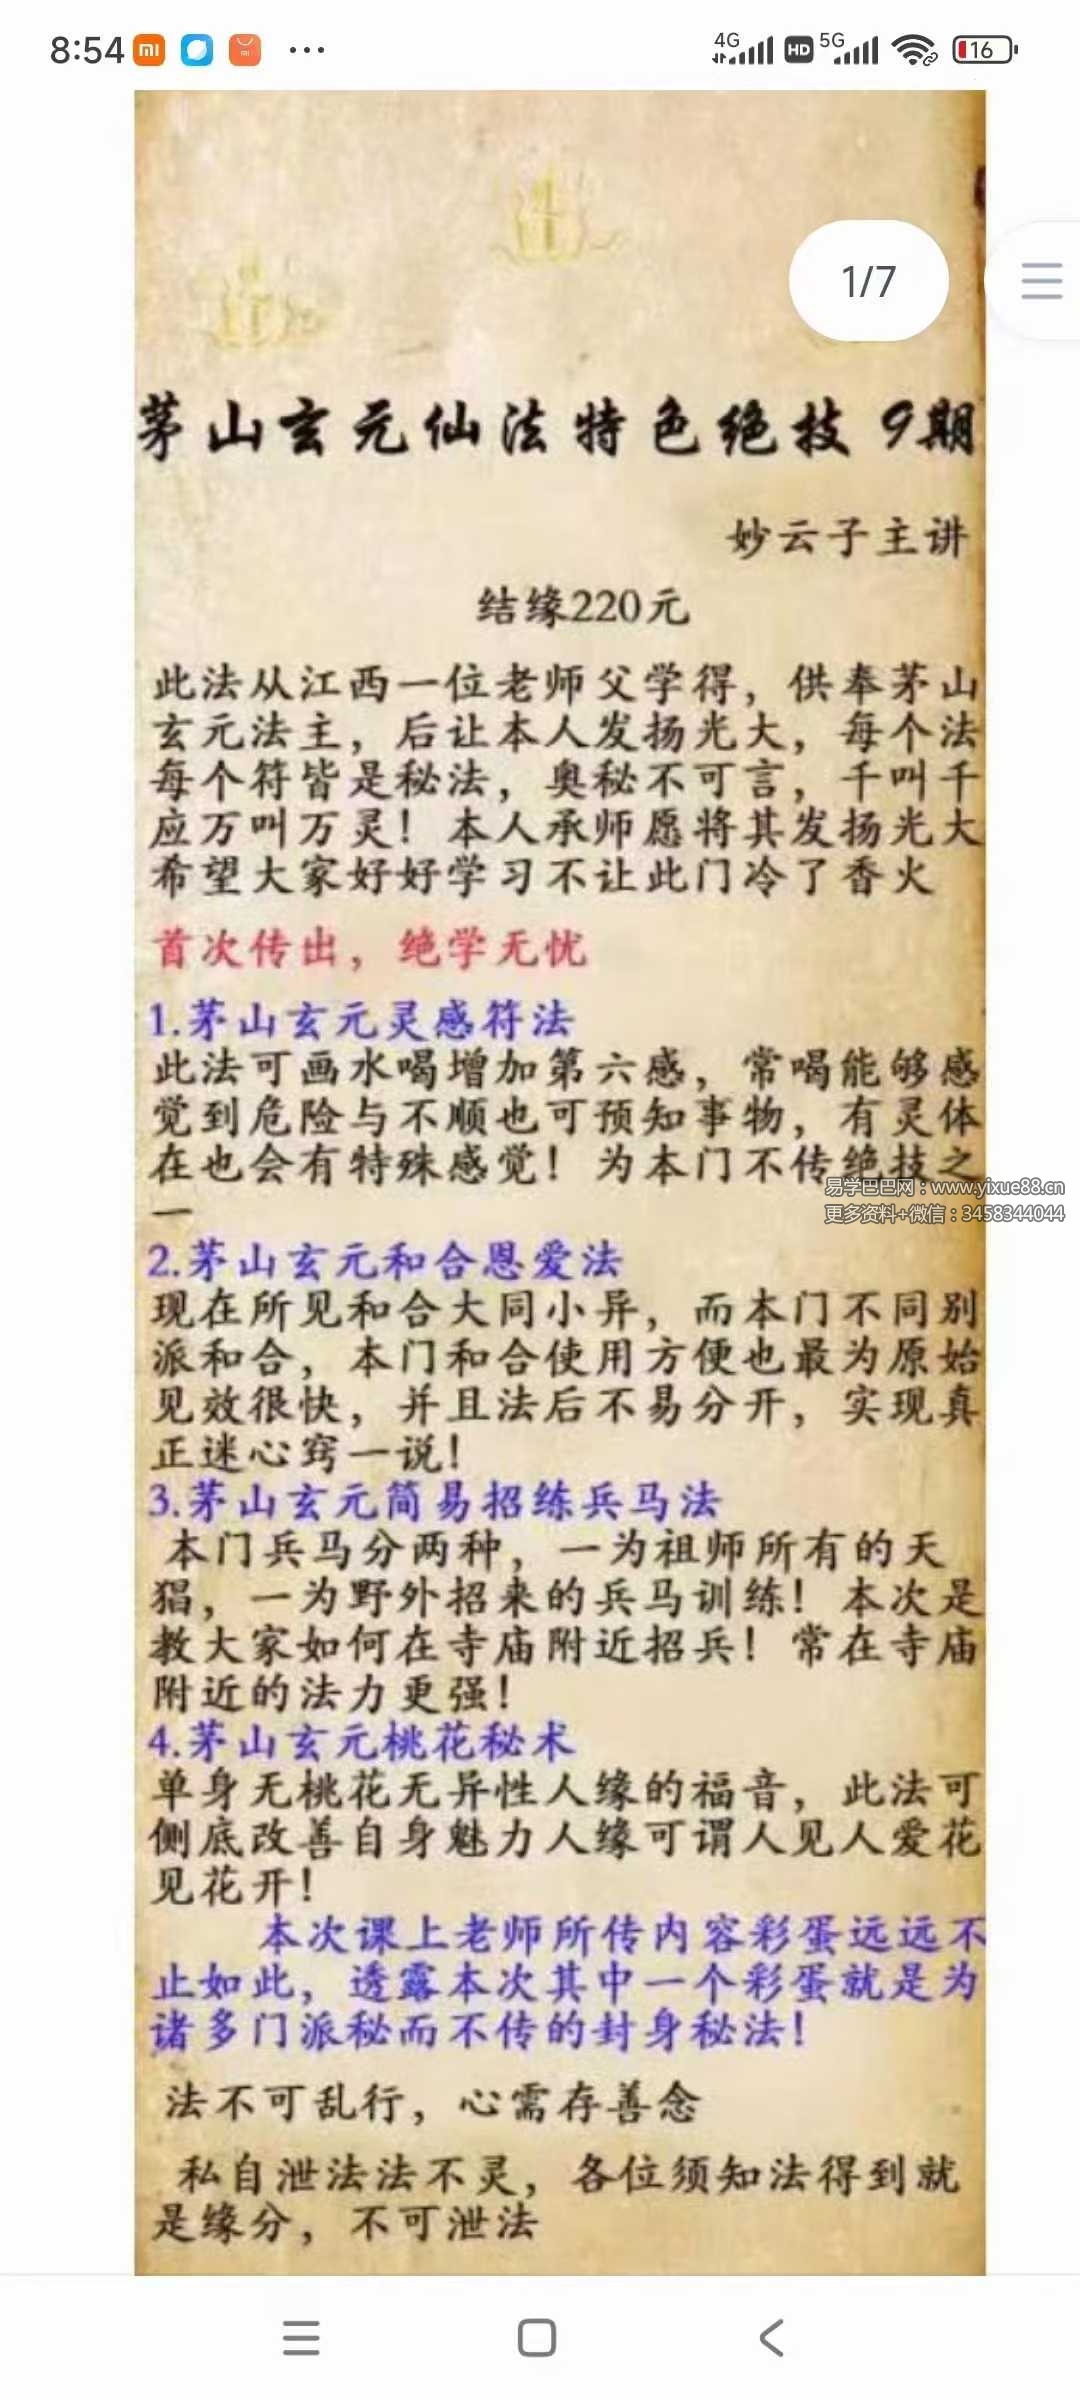 8:54
4G
HD
5G
16
1/7
茅山玄元仙法特色绝技 9期
妙云子主讲
结缘220元
此法从江西一位老师父学得，供奉茅山
玄元法主，后让本人发扬光大，每个法
每个符皆是秘法，奥秘不可言，千叫千
应万叫万灵！本人承师愿将其发扬光大
希望大家好好学习不让此门冷了香火
首次传出，绝学无忧
1.茅山玄元灵感符法
此法可画水喝增加第六感，常喝能够感
觉到危险与不顺也可预知事物，有灵体
在也会有特殊感觉！为本门不传绝技之
一
易学巴巴网：www.yixue88.cn
更多资料+微信：3458344044
2.茅山玄元和合恩爱法
现在所见和合大同小异，而本门不同别
派和合，本门和合使用方便也最为原始
见效很快，并且法后不易分开，实现真
正迷心窍一说！
3.茅山玄元简易招练兵马法
本门兵马分两种，一为祖师所有的天
猖，一为野外招来的兵马训练！本次是
教大家如何在寺庙附近招兵！常在寺庙
附近的法力更强！
4.茅山玄元桃花秘术
单身无桃花无异性人缘的福音，此法可
侧底改善自身魅力人缘可谓人见人爱花
见花开！
本次课上老师所传内容彩蛋远远不
止如此，透露本次其中一个彩蛋就是为
诸多门派秘而不传的封身秘法！
法不可乱行，心需存善念
私自泄法法不灵，各位须知法得到就
是缘分，不可泄法